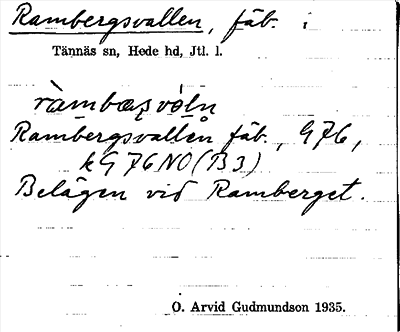 Rambergsvallen, fäb. i
Tännäs sn, Hede hd, Jtl. l.
Rambergsvallen fäb., G76,
kG76NO(B3)
Belägen vid Ramberget.
O. Arvid Gudmundson 1935.